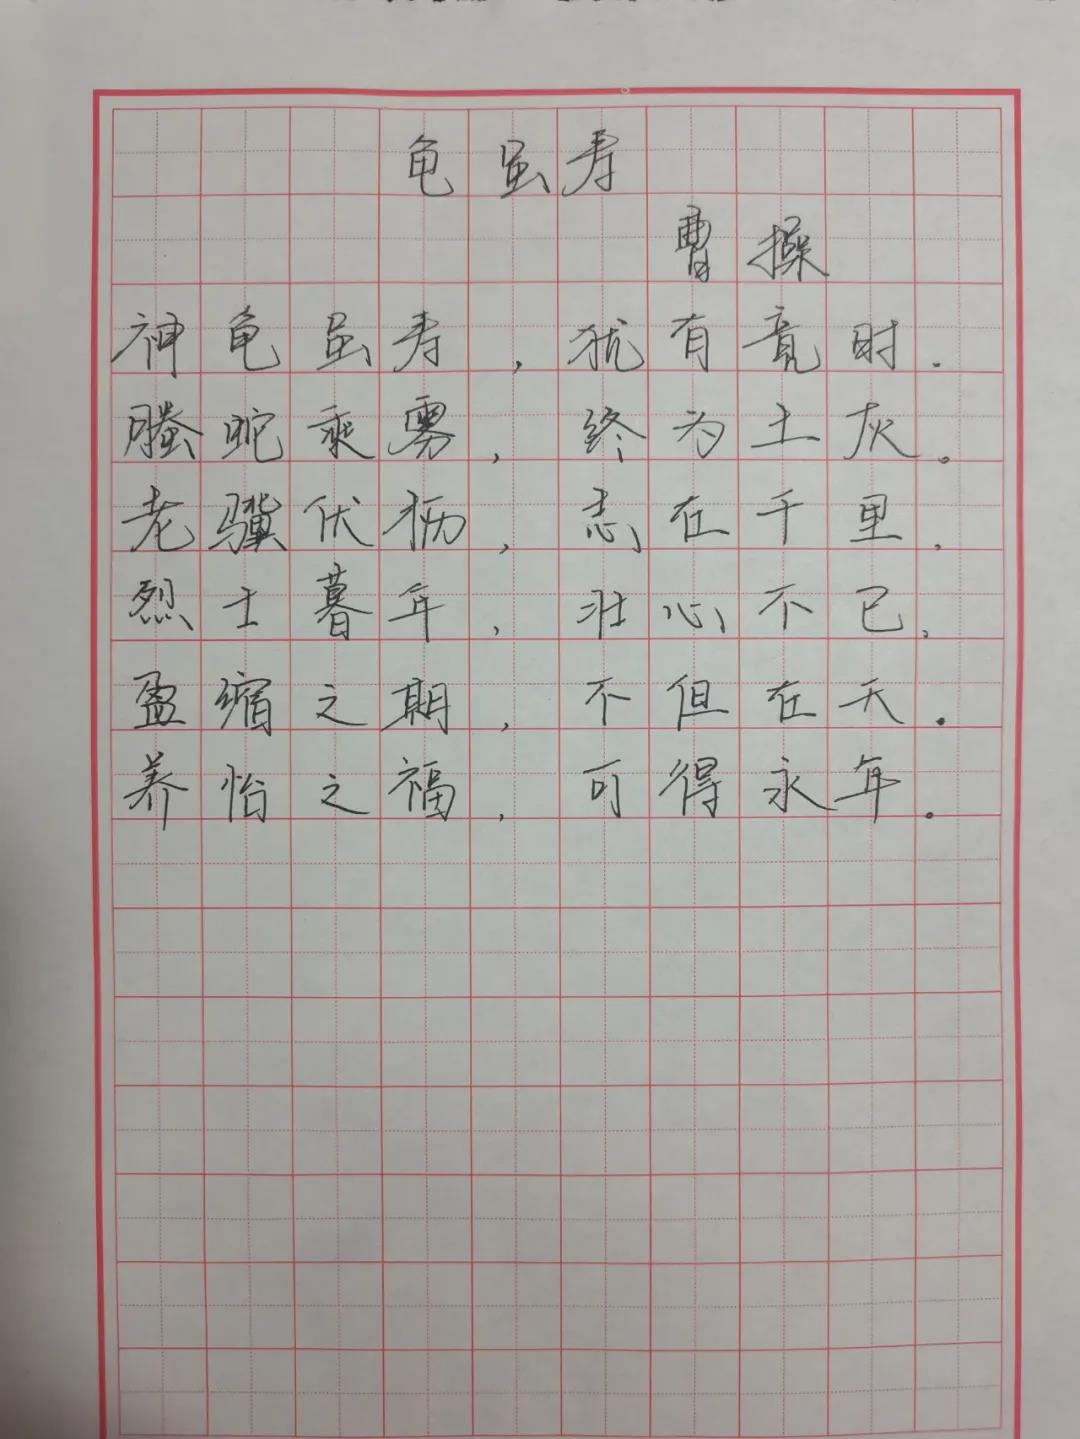 龟虽寿
曹操
神龟虽寿，犹有竟时.
螣蛇乘雾，终为土灰。
老骥伏枥，志在千里，
烈士暮年，壮心不已，
盈缩之期，不但在天.
养怡之福，可得永年.